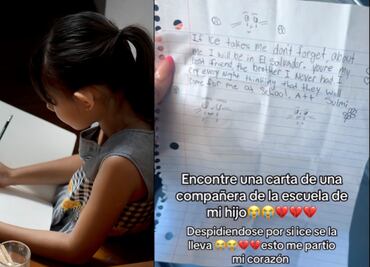 If ice takes me don't forget about
me I will be in El Salvador. you're my
best friend the brother I Never had I
cry every night thinking that they will
come for me at School. Att Sulmi
Encontre una carta de una
compañera de la escuela de
mi hijo😭😭💔💔💔
Despidiendose por si ice se la
lleva 😭😭💔💔esto me partio
mi corazón